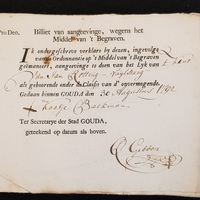 Pro Deo.
Billiet van aangeevinge, wegens het
Middel van 't Begraven.
IK ondergeschreven verklare by dezen, ingevolge
van de Ordonnantie op 't Middel van 't Begraven
geëmaneert, aangevinge te doen van het Lyk van
Van Jan
als gehoorende onder de Classis van d' onvermogende.
Gedaan binnen GOUDA den 30 Augustus 1792
Ter Secretarye der Stad GOUDA,
geteekend op datum als boven.